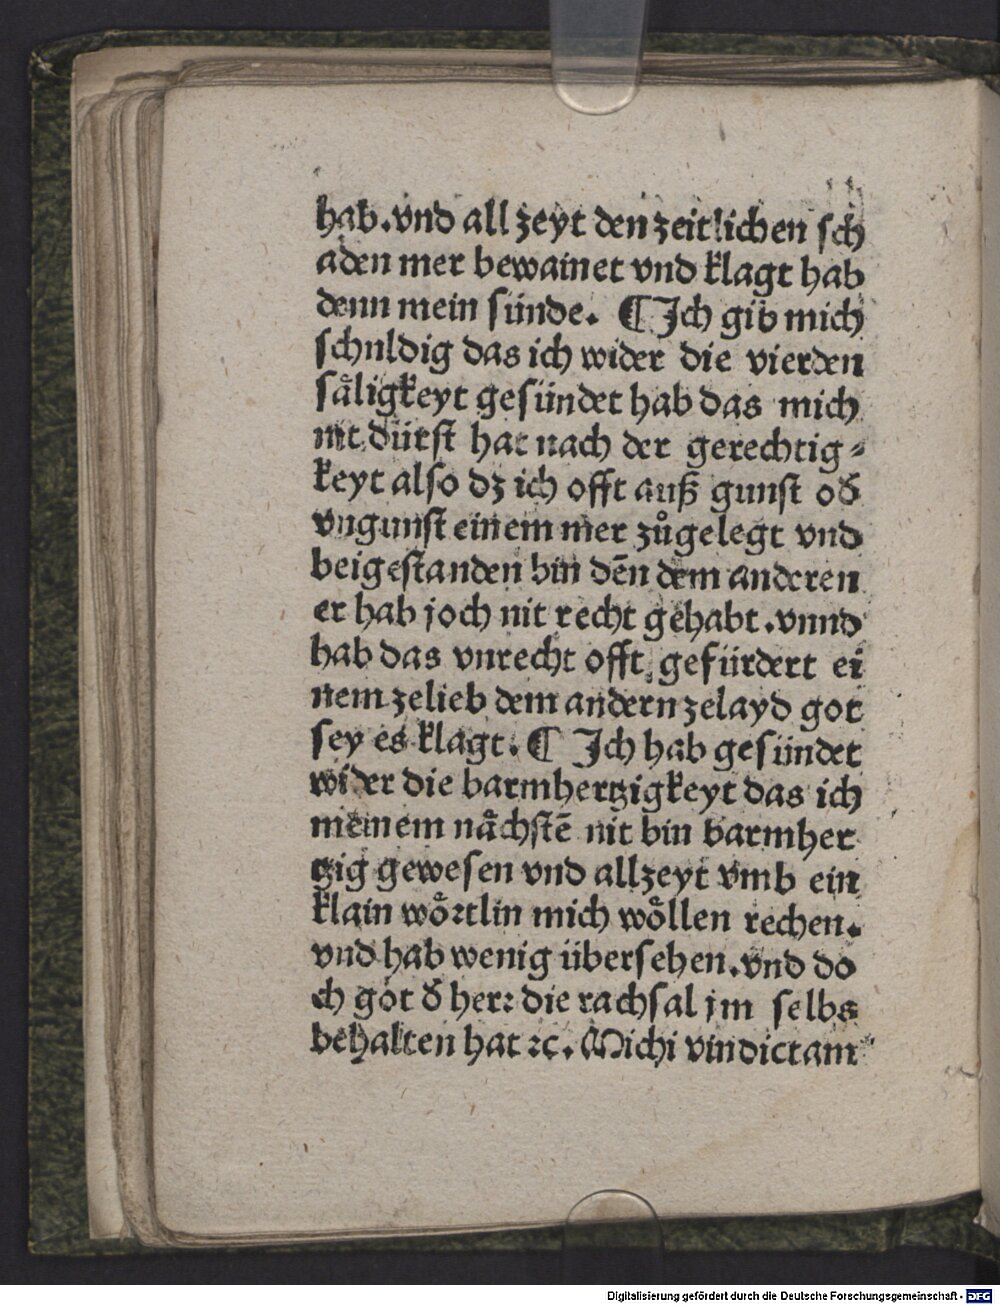 hab. vnd all zeyt den zeitlichen sch
aden mer bewainet vnd klagt hab
denn mein sünde. ¶ Ich gib mich
schuldig das ich wider die vierden
såligkeyt gesündet hab das mich
nit dürst hat nach der gerechtig⸗
keyt also dz ich offt auß gunst od̕
vngunst einem mer zůgelegt vnd
beigestanden bin dēn dem anderen
er hab joch nit recht gehabt. vnnd
hab das vnrecht offt gefürdert ei
nem zelieb dem andern zelayd got
sey es klagt. ¶ Ich hab gesündet
wider die barmhertzigkeyt das ich
meinem nåͤchstē nit bin barmher
tzig gewesen vnd allzeyt vmb ein
klain woͤꝛtlin mich woͤllen rechen.
vnd hab wenig übersehen. vnd do
ch got d̕ herꝛ die rachsal jm selbs
behalten hat ꝛc. Michi vindictam
Digitalisierung gefördert durch die Deutsche Forschungsgemeinschaft - DFG